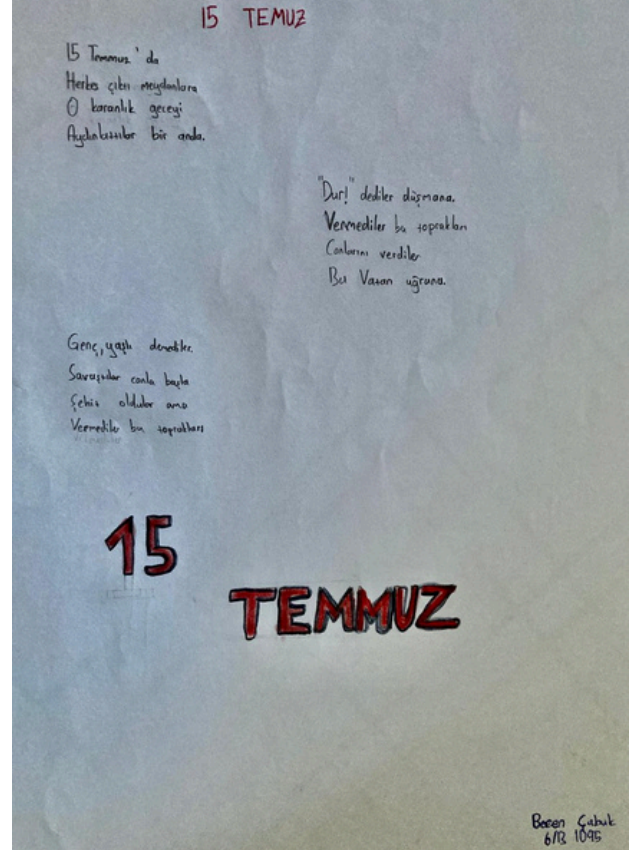 15 TEMUZ
15 Temmuz'da
Herkes çıktı meydanlara
O karanlık geceyi
Aydınlattılar bir anda.
"Dur!" dediler düşmana.
Vermediler bu toprakları
Canlarını verdiler
Bu Vatan uğruna.
Genç, yaşlı demediler.
Savaştılar canla başla
Şehit oldular ama
Vermediler bu toprakları
15
TEMMUZ
Beren Çubuk
6/B 1095